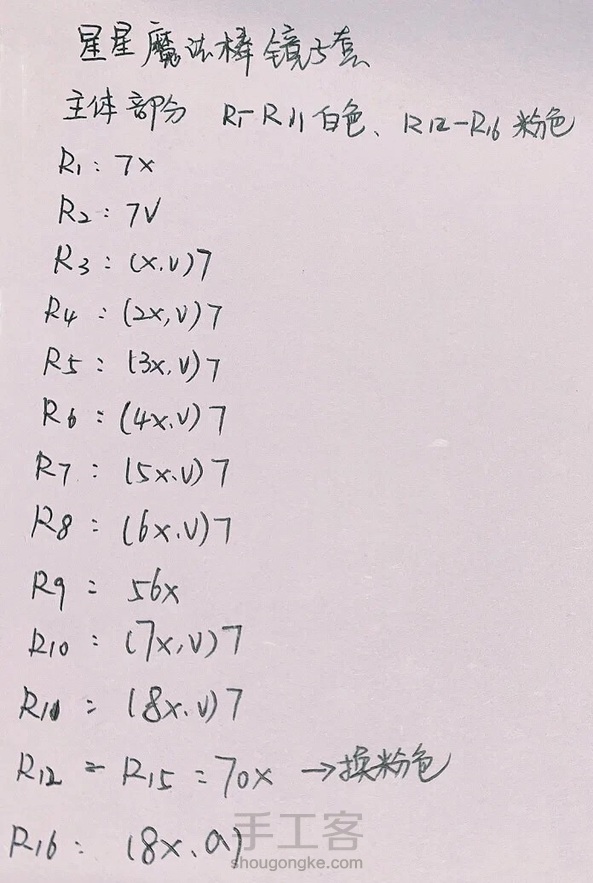 星星魔法棒镜子套
主体部分 R1-R11白色、R12-R16粉色
R1: 7x
R2: 7V
R3: (x.v)7
R4: (2x,v)7
R5: (3x,v)7
R6: (4x.v)7
R7: (5x.v)7
R8: (6x.v)7
R9: 56x
R10: (7x,v)7
R11: (8x.v)7
R12-R15: 70x →换粉色
R16: (8x.A)
手工客
shougongke.com